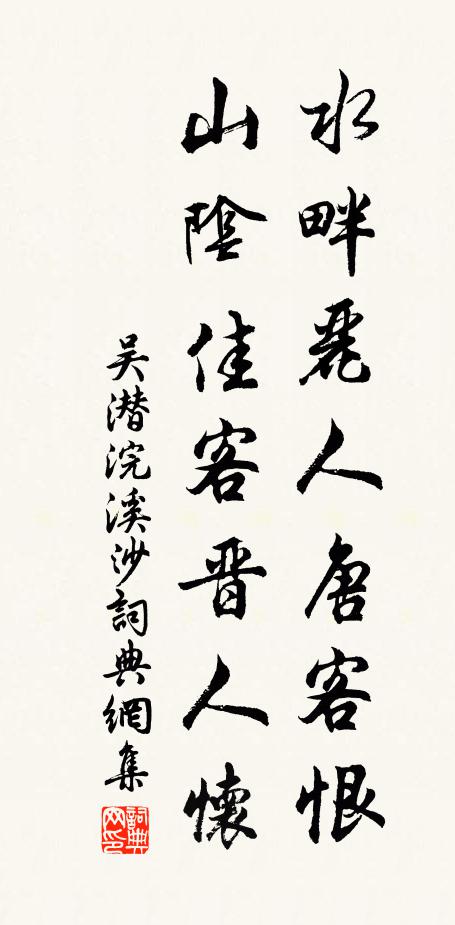 水畔麗人唐客恨
山陰佳客晋人懷
吴潜浣溪沙詞典網集
詞典
网印